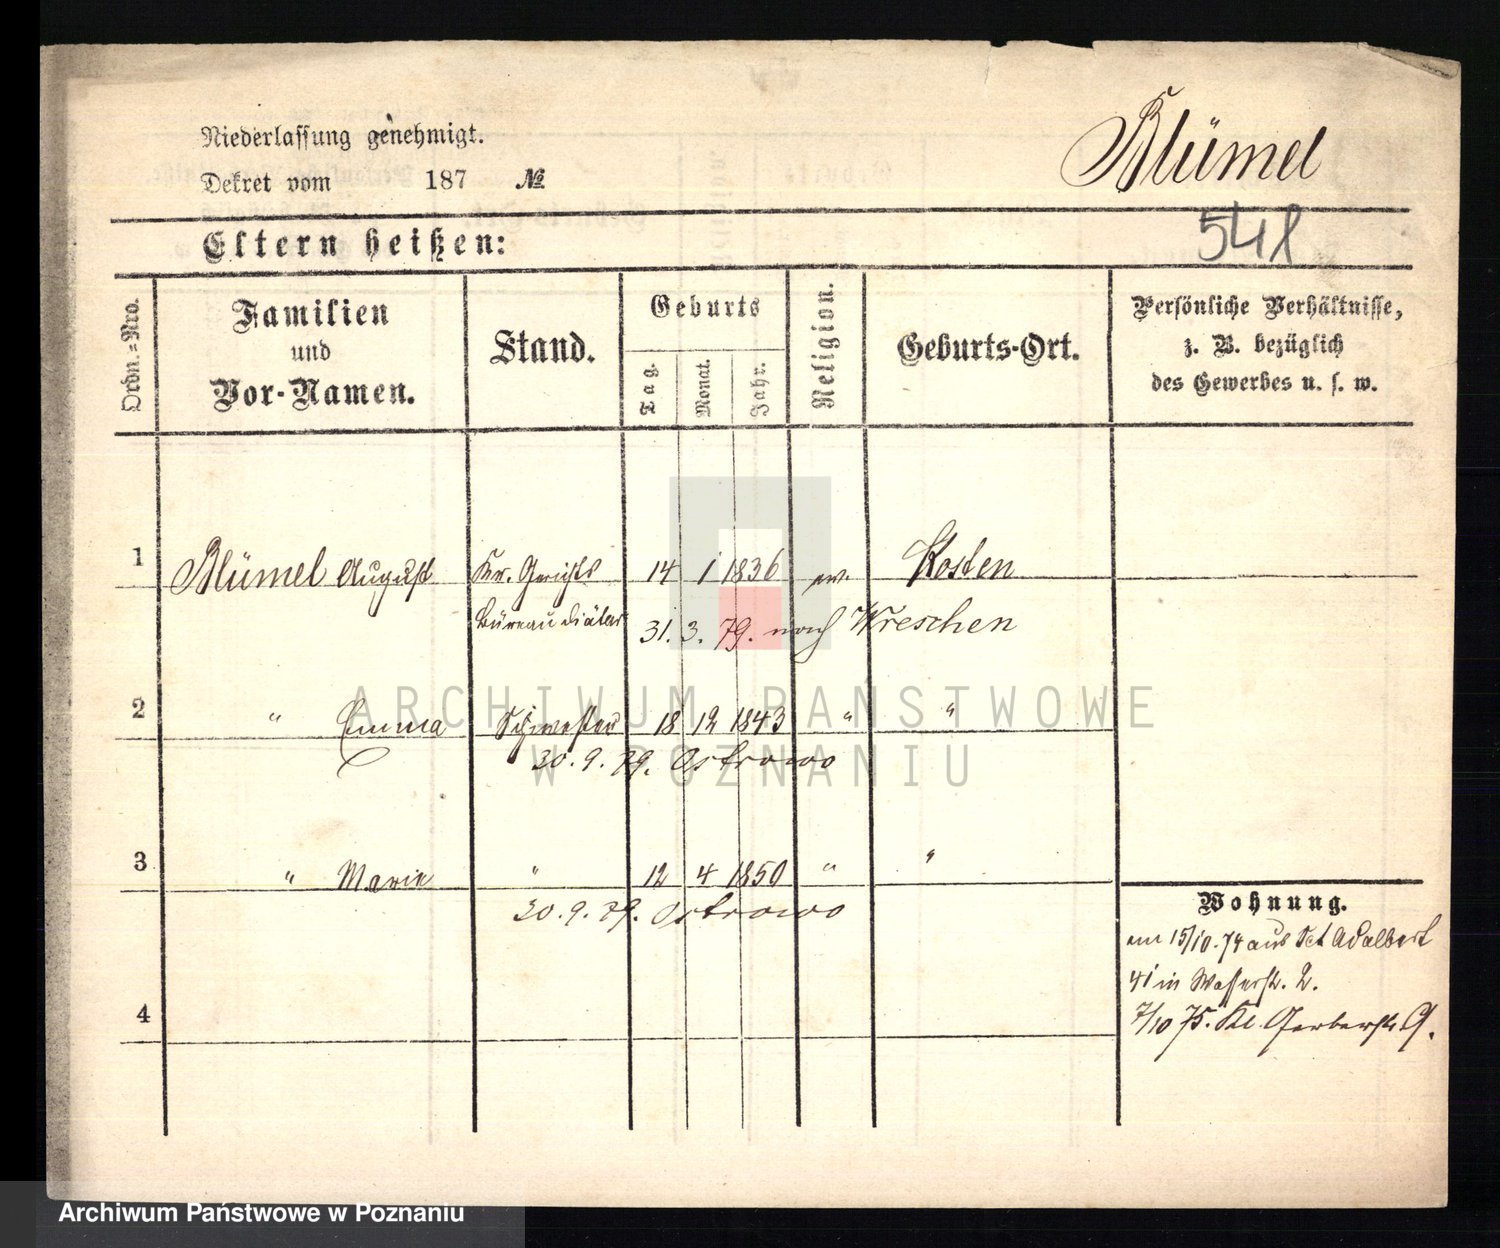 Niederlassung genehmigt.
Dekret vom 187 №
Blümel
541
Eltern heißen:
Ordn.=Nro.
Familien und Vor-Namen.
Stand.
Geburts
Tag.
Monat.
Jahr.
Religion.
Geburts-Ort.
Persönliche Verhältnisse,
z. B. bezüglich
des Gewerbes u. s. w.
1 Blümel August Kr. Gerichts 14 1 1836 ev. Kosten
Büreau Diätar 31. 3. 79. nach Wreschen
2 " Emma Schwester 18 12 1843 " "
30. 9. 79. Ostrowo
3 " Marie " 12 4 1850 " "
30. 9. 79. Ostrowo
4
Wohnung.
am 15/10. 74 aus Sct Adalbert
41 in Wasserstr. 2.
7/10 75. Kl. Gerberstr. 9.
ARCHIWUM PAŃSTWOWE
W POZNANIU
Archiwum Państwowe w Poznaniu